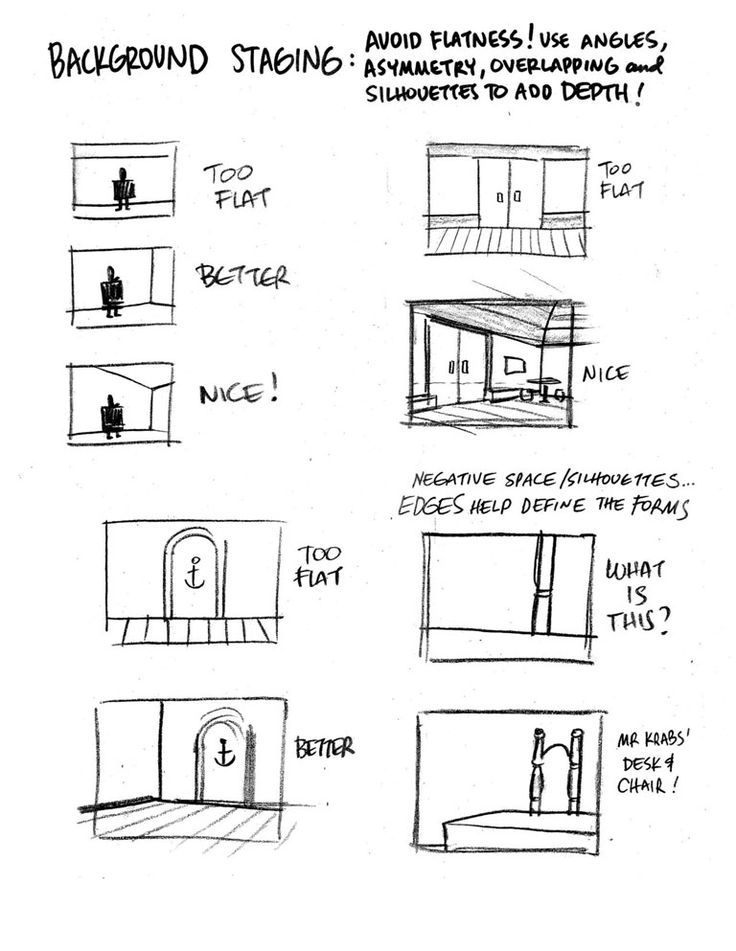 BACKGROUND STAGING:
AVOID FLATNESS! USE ANGLES,
ASYMMETRY, OVERLAPPING and
SILHOUETTES TO ADD DEPTH!
TOO
FLAT
BETTER
NICE!
TOO
FLAT
NICE
TOO
FLAT
BETTER
NEGATIVE SPACE/SILHOUETTES...
EDGES HELP DEFINE THE FORMS
WHAT
IS
THIS?
MR KRABS'
DESK &
CHAIR!